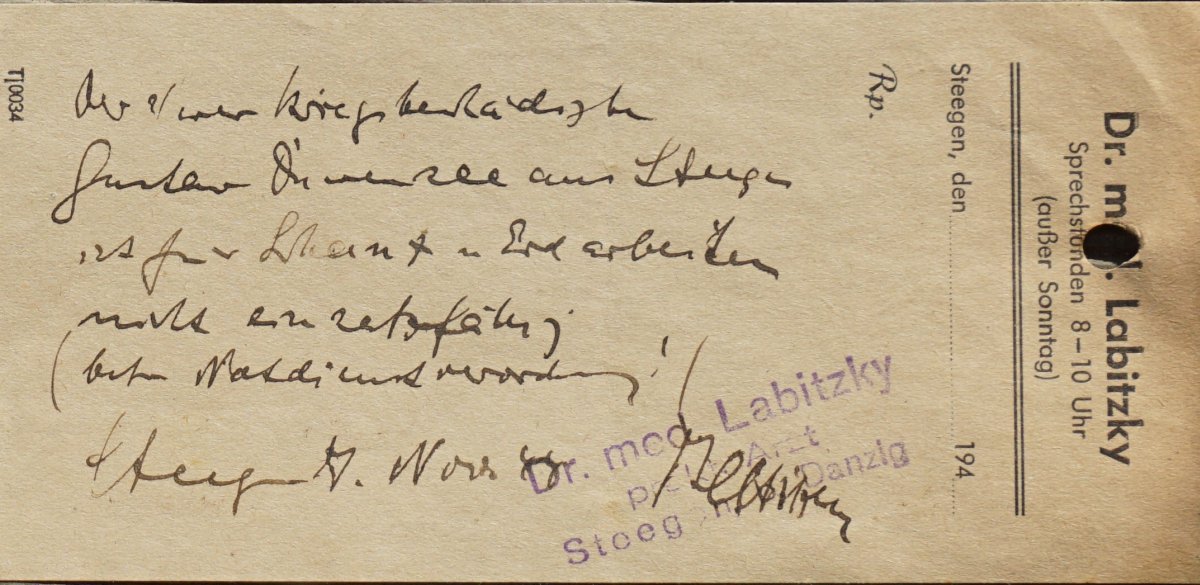 Dr. med. Labitzky
Sprechstunden 8–10 Uhr
(außer Sonntag)
Steegen, den 194
Rp.
Der schwer Kriegsbeschädigte
Gustav aus Steegen
ist für Schanz u Erdarbeiten
nicht einsatzfähig
(betr. Notdienstverordnung!)
Steegen Nov. 44
Dr. med. Labitzky
prakt. Arzt
Steegen Danzig
Tj0034